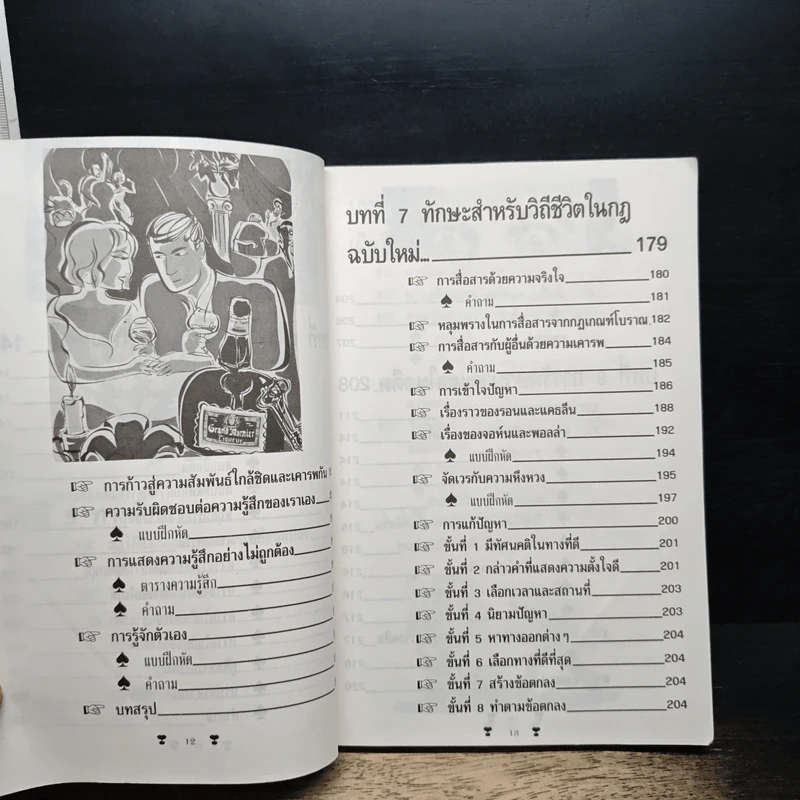 Grand Marnier
Liqueur
การก้าวสู่ความสัมพันธ์ใกล้ชิดและเคารพกัน
ความรับผิดชอบต่อความรู้สึกของเราเอง
แบบฝึกหัด
การแสดงความรู้สึกอย่างไม่ถูกต้อง
ตารางความรู้สึก
คำถาม
การรู้จักตัวเอง
แบบฝึกหัด
คำถาม
บทสรุป
12
บทที่ 7 ทักษะสำหรับวิถีชีวิตในกฎ
ฉบับใหม่... 179
การสื่อสารด้วยความจริงใจ 180
คำถาม 181
หลุมพรางในการสื่อสารจากกฎเกณฑ์โบราณ 182
การสื่อสารกับผู้อื่นด้วยความเคารพ 184
คำถาม 185
การเข้าใจปัญหา 186
เรื่องราวของรอนและแคธลีน 188
เรื่องของจอห์นและพอลล่า 192
แบบฝึกหัด 194
จัดเวรกับความหึงหวง 195
แบบฝึกหัด 197
การแก้ปัญหา 200
ขั้นที่ 1 มีทัศนคติในทางที่ดี 201
ขั้นที่ 2 กล่าวคำที่แสดงความตั้งใจดี 201
ขั้นที่ 3 เลือกเวลาและสถานที่ 203
ขั้นที่ 4 นิยามปัญหา 203
ขั้นที่ 5 หาทางออกต่างๆ 204
ขั้นที่ 6 เลือกทางที่ดีที่สุด 204
ขั้นที่ 7 สร้างข้อตกลง 204
ขั้นที่ 8 ทำตามข้อตกลง 204
13